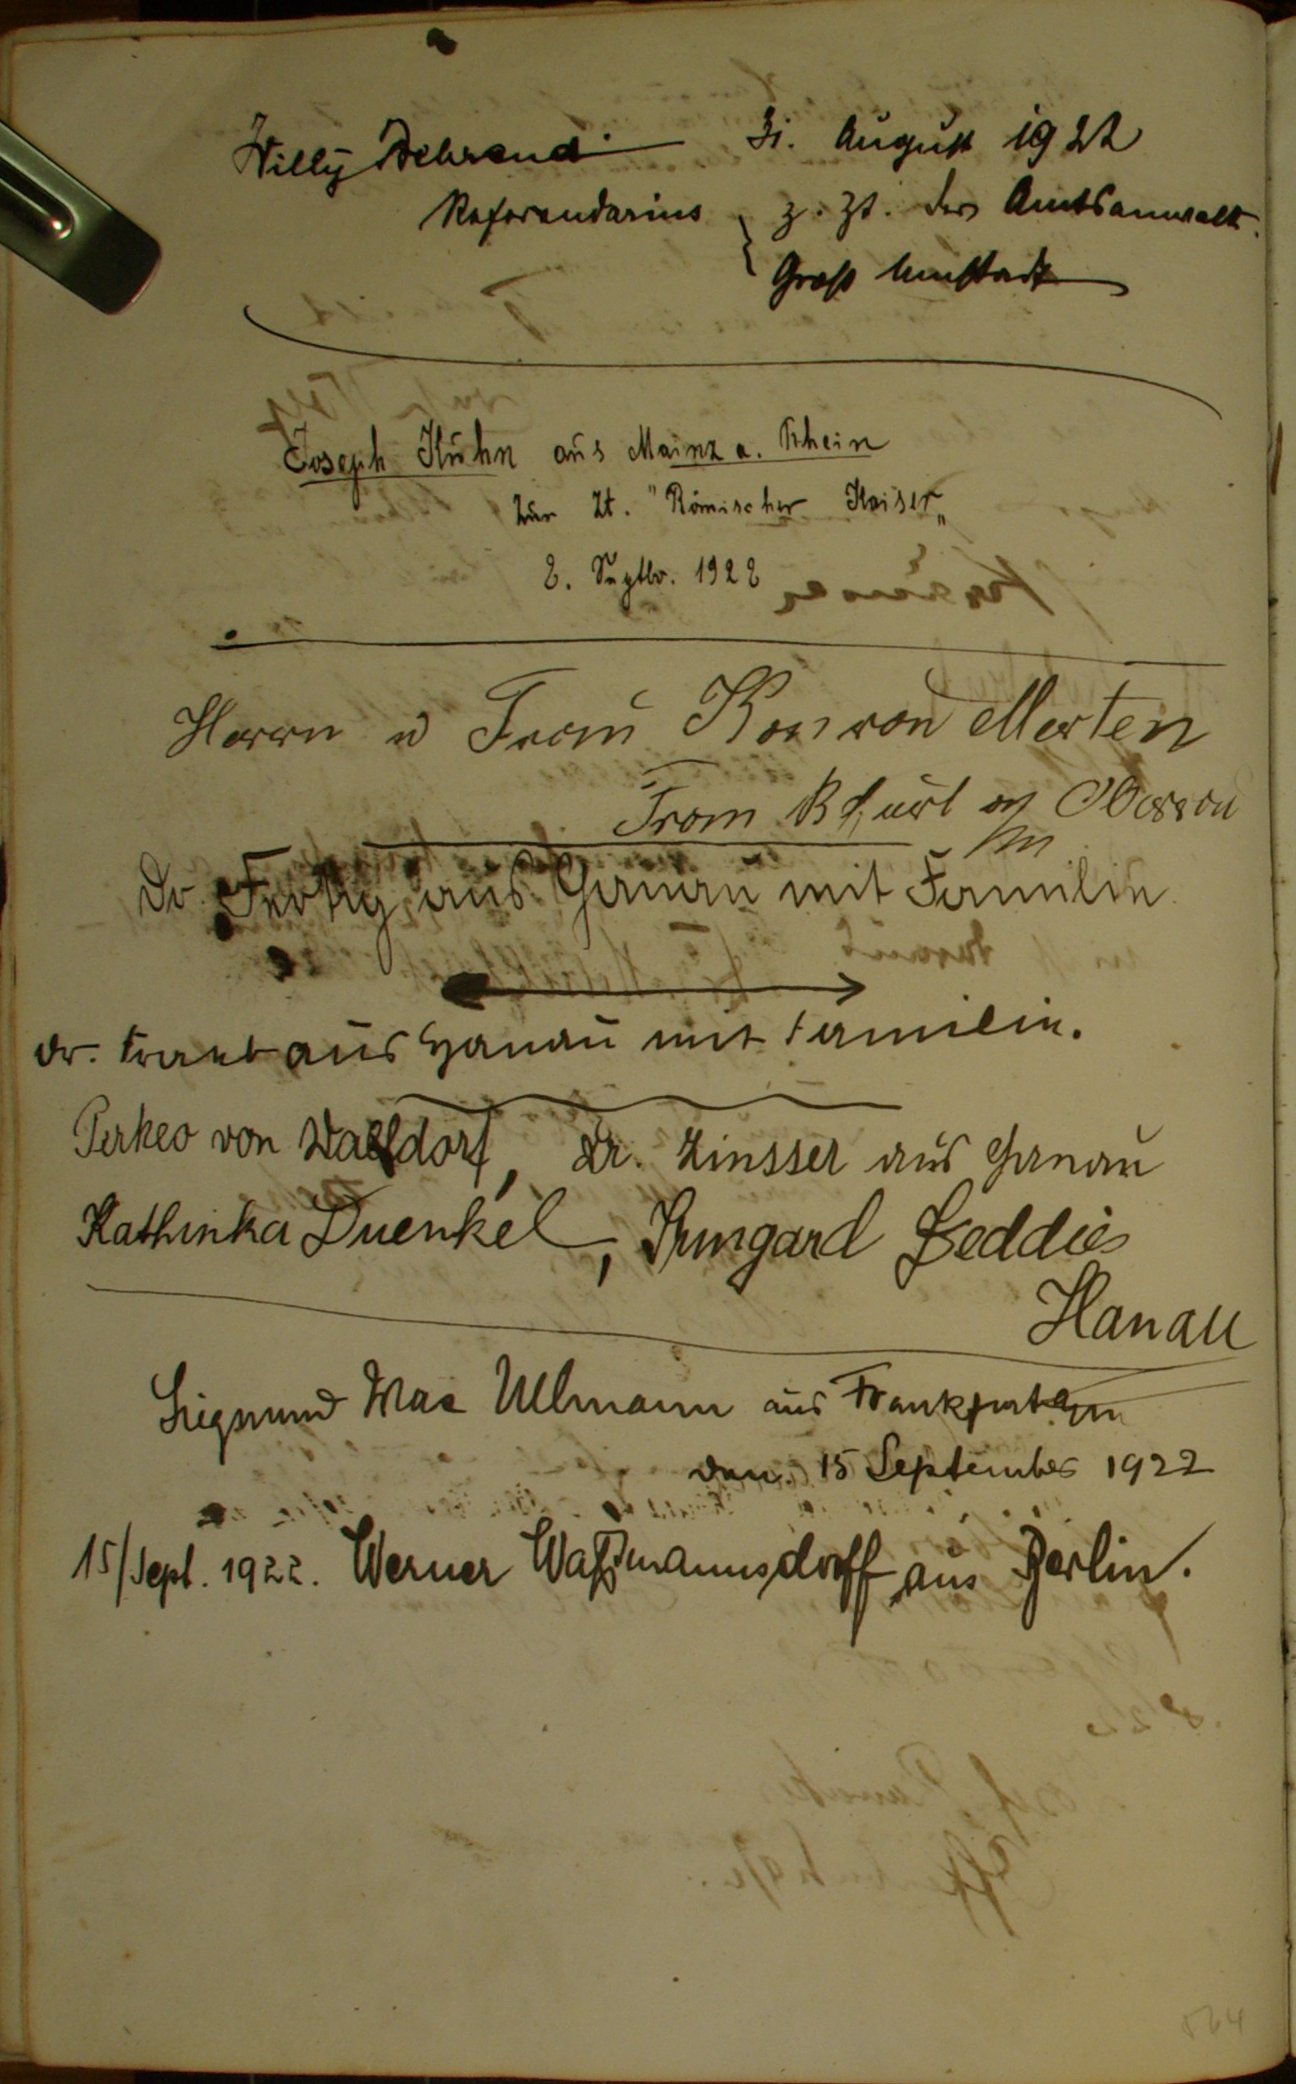 Willy Behrend 31. August 1922
Referendarius z. Zt. der Amtsanwalt.
Groß Umstadt
Joseph Kuhn aus Mainz a. Rhein
zur Zt. "Römischer Kaiser"
2. Septbr. 1922
Herrn u Frau von Merten
From
Dr. aus Hanau mit Familie.
Dr. aus Hanau mit Familie.
Perkeo von Walldorf, Dr. Zinsser aus Hanau
Kathinka Duenkel, Irmgard Beddies
Hanau
Sigmund Max Ullmann aus Frankfurt a/m
den 15 September 1922
15/Sept. 1922. Werner Waßmannsdorff aus Berlin.